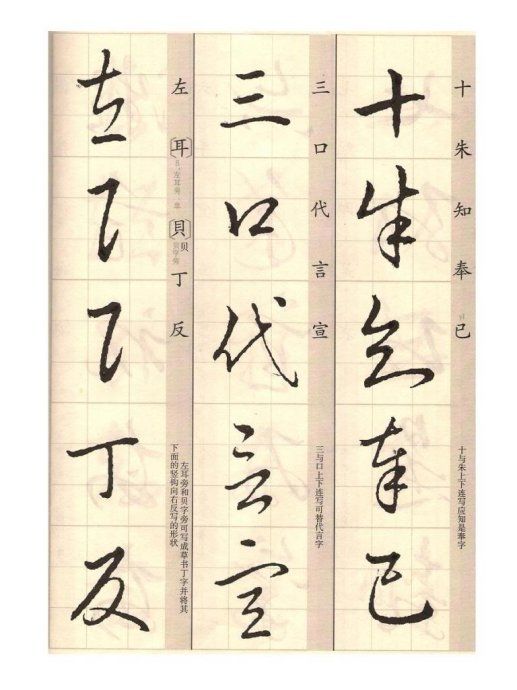 十朱知奉已
十 朱 知 奉 已
十与朱上下连写应知是奉字
三口代言宣
三 口 代 言 宣
三与口上下连写可替代言字
左丁反
左〔耳〕〔貝〕贝丁反
左耳旁
贝字旁
左耳旁和贝字旁可写成草书丁字并将其
下面的竖钩向右反写的形状